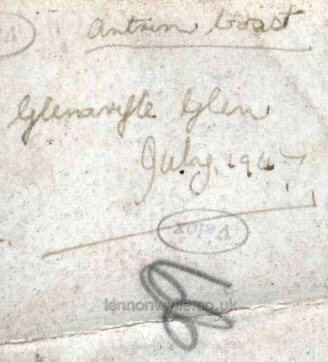 Antrim Coast
Glenariffe Glen
July 1947
Velox
lennonwylie.co.uk